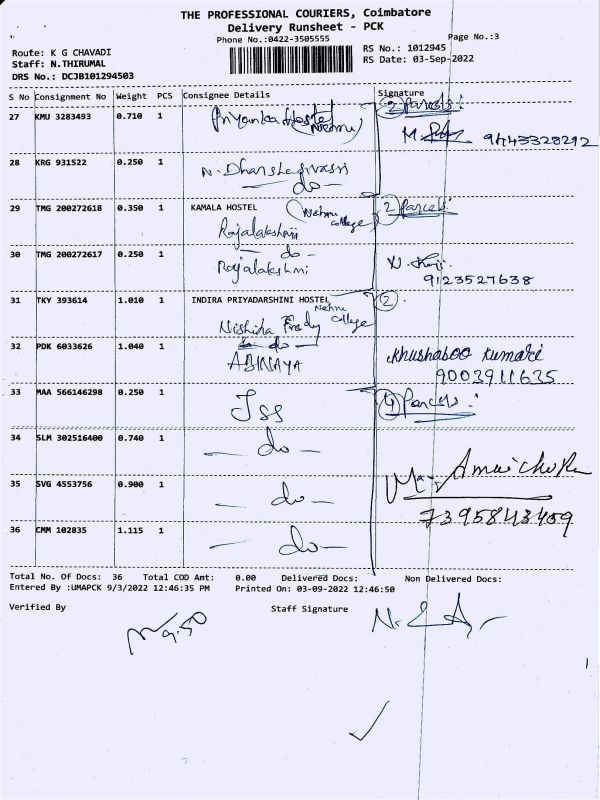 THE PROFESSIONAL COURIERS, Coimbatore
Delivery Runsheet - PCK
Phone No.:0422-3505555
Page No.:3
Route: K G CHAVADI
RS No.: 1012945
Staff: N.THIRUMAL
RS Date: 03-Sep-2022
DRS No.: DCJB101294503
S No Consignment No Weight PCS Consignee Details Signature
27 KMU 3283493 0.710 1 Priyanka Hostel 2 Parcels:
9443328212
28 KRG 931522 0.250 1
N. Dharshagivasri
- do -
29 TMG 200272618 0.350 1 KAMALA HOSTEL (Nehru college) 2 Parcels:
Rajalakshmi
30 TMG 200272617 0.250 1 - do -
Rajalakshmi
9123527638
31 TKY 393614 1.010 1 INDIRA PRIYADARSHINI HOSTEL 2
Nehru college
Nishiha
32 PDK 6033626 1.040 1 - do -
ABINAYA Khushaboo Kumari
9003911635
33 MAA 566146298 0.250 1 JSS 4 Parcels:
34 SLM 302516400 0.740 1 - do -
35 SVG 4553756 0.900 1 - do -
7395843459
36 CMM 102835 1.115 1 - do -
Total No. Of Docs: 36 Total COD Amt: 0.00 Delivered Docs: Non Delivered Docs:
Entered By :UMAPCK 9/3/2022 12:46:35 PM Printed On: 03-09-2022 12:46:50
Verified By Staff Signature
9.50